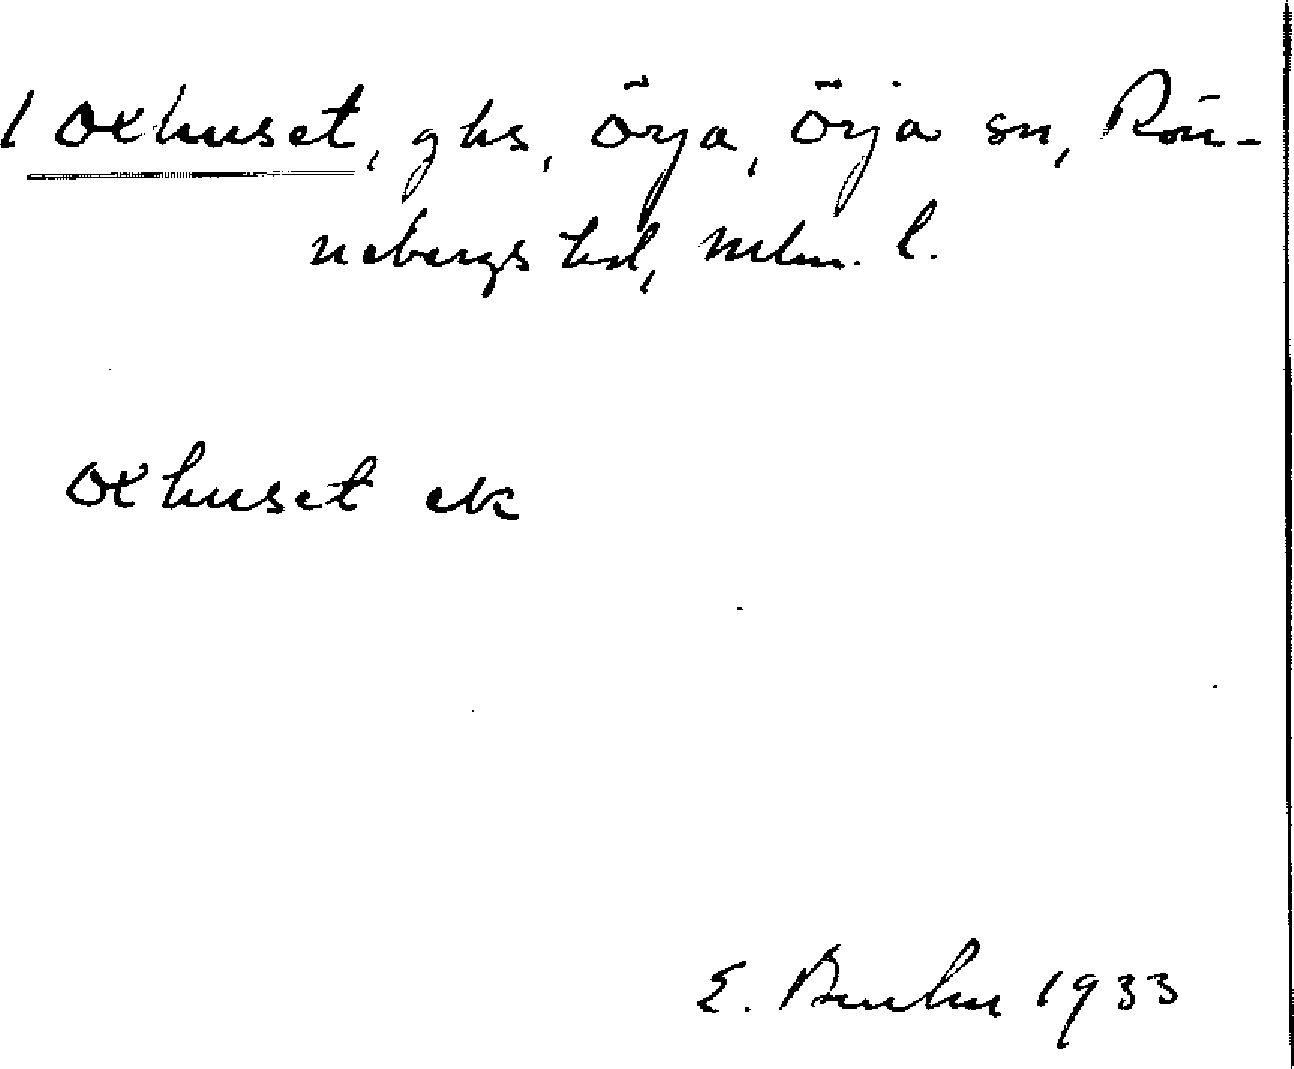 1 Oxhuset, ghs, Örja, Örja sn, Rön-
nebergs hd, Mlm. l.
Oxhuset ek
E. Buhu 1933